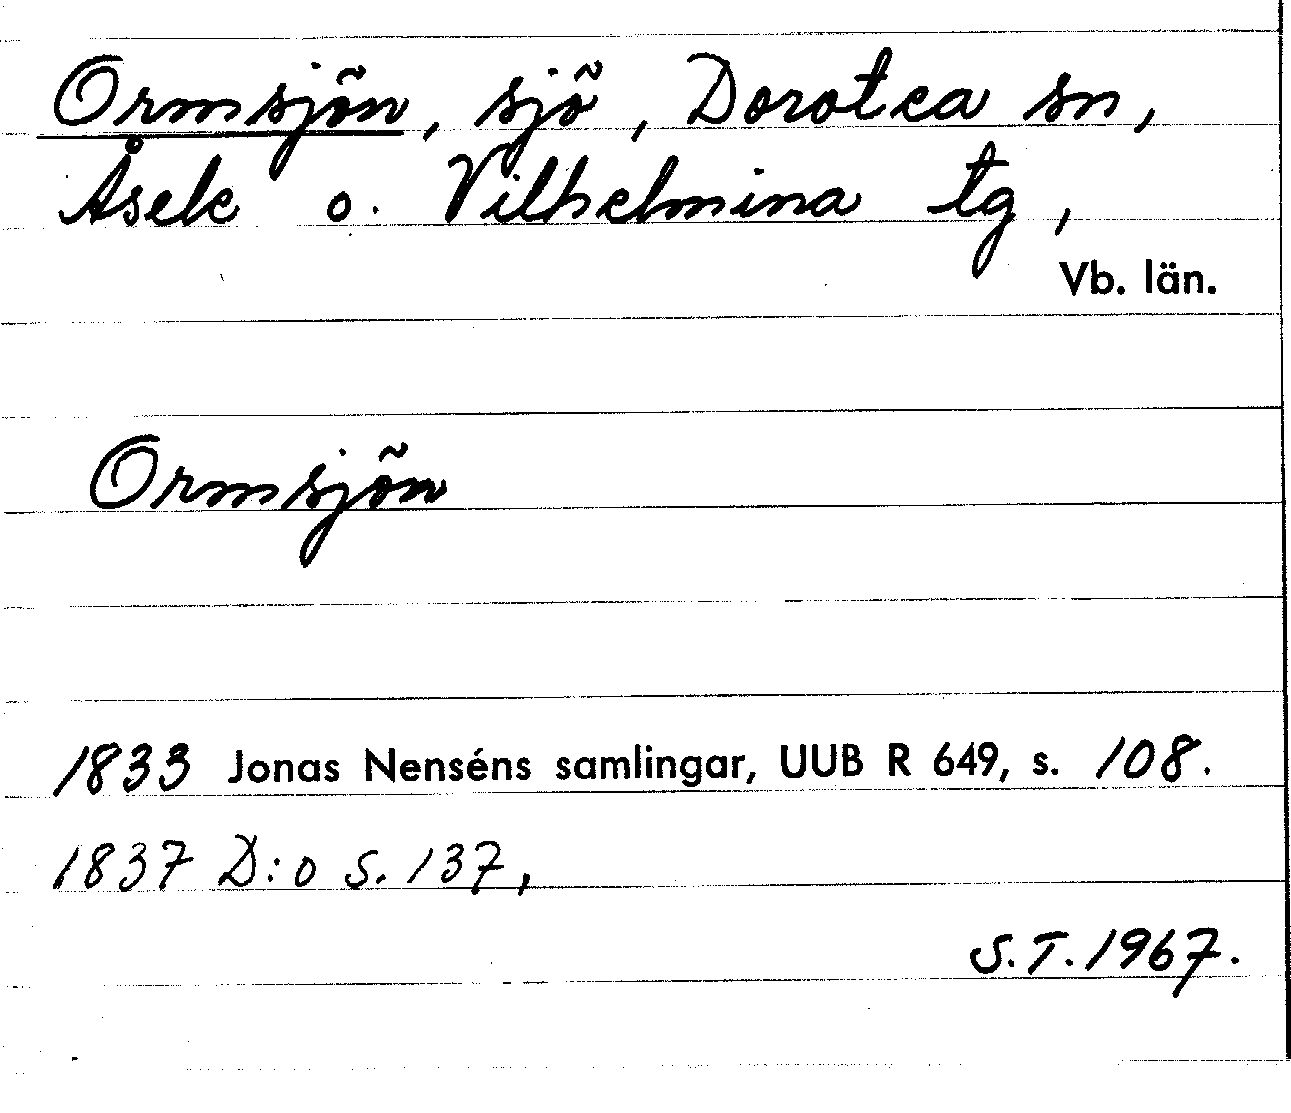 Ormsjön, sjö, Dorotea sn,
Åsele o. Vilhelmina tg,
Vb. län.
Ormsjön
1833 Jonas Nenséns samlingar, UUB R 649, s. 108.
1837 D:o s. 137,
S.T. 1967.